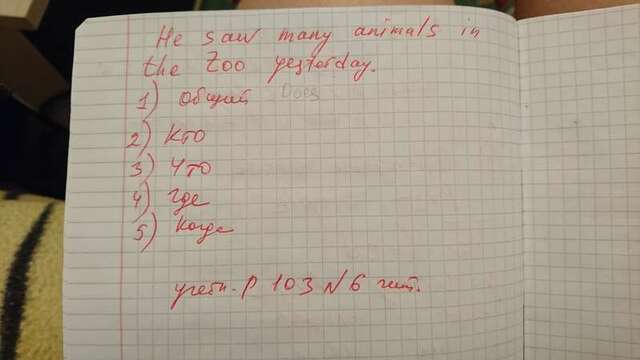 He saw many animals in
the Zoo yesterday.
1) Общий Does
2) Кто
3) Что
4) Где
5) Когда
учебн. P 103 N 6 чит.